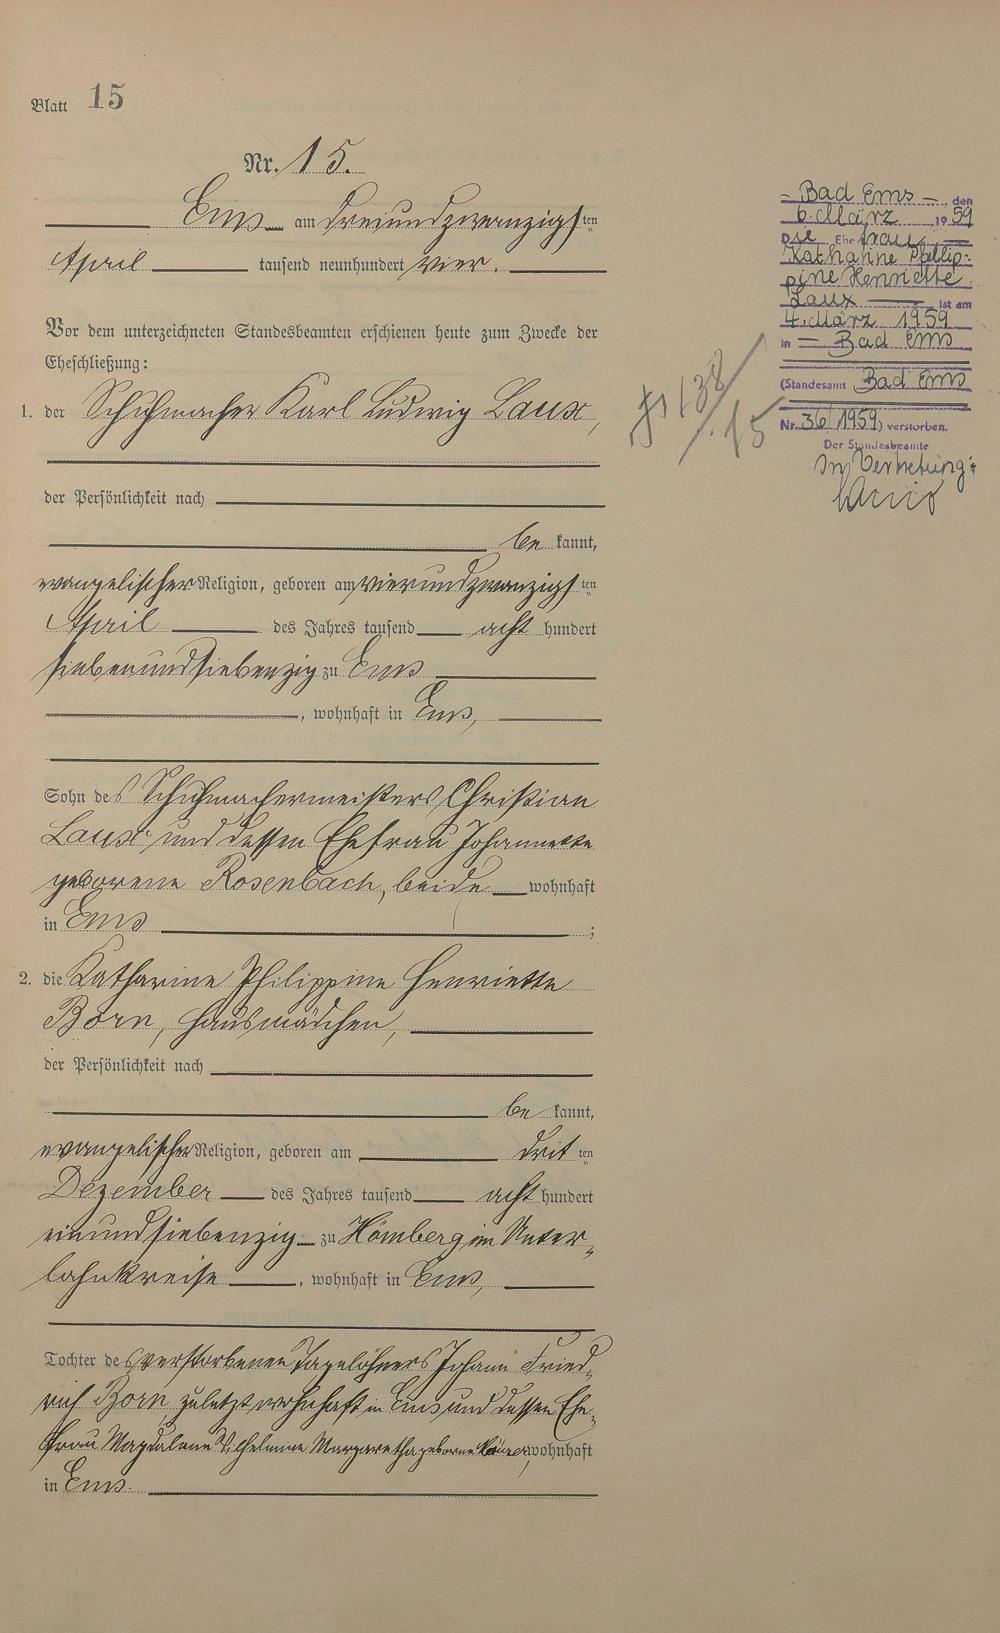 Blatt 15
Nr. 15.
Ems am dreiundzwanzigsten
April tausend neunhundert vier.
Vor dem unterzeichneten Standesbeamten erschienen heute zum Zwecke der
Eheschließung:
1. der Schuhmacher Karl Ludwig Laux,
der Persönlichkeit nach
be kannt,
evangelischer Religion, geboren am vierundzwanzigsten
April des Jahres tausend acht hundert
siebenundsiebenzig zu Ems
, wohnhaft in Ems,
Sohn des Schuhmachermeisters Christian
Laux und dessen Ehefrau Johannette
geborene Rosenbach, beide wohnhaft
in Ems ;
2. die Katharine Philippine Henriette
Born, Hausmädchen,
der Persönlichkeit nach
be kannt,
evangelischer Religion, geboren am dritten
Dezember des Jahres tausend acht hundert
einundsiebenzig zu Hömberg im Unter-
lahnkreise, wohnhaft in Ems,
Tochter des verstorbenen Tagelöhners Johann Fried-
rich Born, zuletzt wohnhaft in Ems und dessen Ehe-
frau Magdalene Wilhelmine Margaretha geborne wohnhaft
in Ems.
- Bad Ems -, den
6. März 1959
Die Ehefrau
Katharine Phillip-
pine Henriette
Laux ist am
4. März 1959
in - Bad Ems
(Standesamt Bad Ems
Nr. 36/1959) verstorben.
Der Standesbeamte
In Vertretung:
138
15